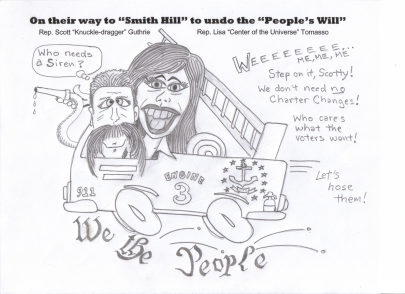 On their way to “Smith Hill” to undo the “People’s Will”
Rep. Scott “Knuckle-dragger” Guthrie
Rep. Lisa “Center of the Universe” Tomasso
Who needs
a Siren?
WEEEEEEEE...
ME, ME, ME!
Step on it, Scotty!
We don't need no
Charter Changes!
Who cares
what the
voters want!
Let's
hose
them!
ENGINE
3
911
We the People